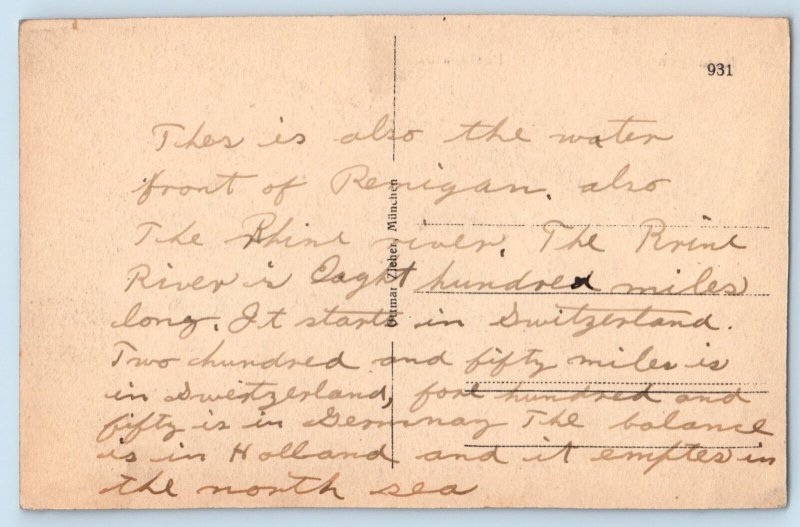 931
Thes is also the water
front of Renigan. also
The Rhine river. The Rrine
River is Eaght hundred miles
long. It starts in Switzerland.
Two hundred and fifty miles is
in Swertzerland, fore hundred and
fifty is in Germnay The balance
is in Holland and it emptes in
the north sea
Ottmar Zieher, München